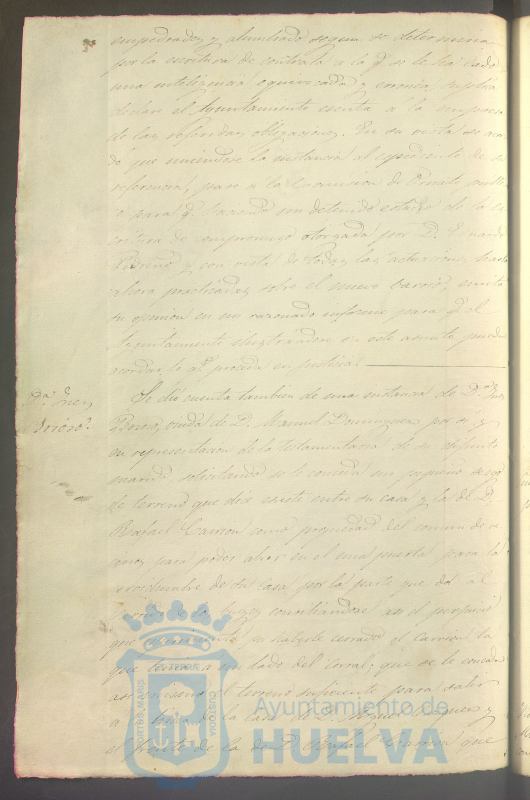 empedrados y alumbrado segun se determina
por la escritura de contrata a la q.e se le ha dado
una inteligencia equivocada y erronea, suplica
declare el Ayuntamiento esenta á la empresa
de las referidas obligaciones. En su vista se acor-
dó que uniendose la instancia al espediente de su
referencia, pase á la Comision de Ornato publi-
co para q.e haciendo un detenido estudio de la es-
critura de compromiso otorgada por D.
y con vista de todas las actuaciones hasta
ahora practicadas sobre el nuevo barrio, emita
su opinion en un razonado informe para q.e el
Ayuntamiento ilustrandose en este asunto pueda
acordar lo q.e proceda en justicia.
D.a Ines
Se dió cuenta tambien de una instancia de D.a Ines
viuda de D. Manuel Dominguez por si y
en representacion de la testamentaria de su difunto
marido, solicitando se le conceda un pequeño
de terreno que dice existe entre su casa y la de D.
Rafael Carrion como propiedad del comun de ve-
cinos para poder abrir en el una puerta para la
servidumbre de su casa por la parte que da al
conciliandose asi el perjuicio
que haberle cerrado el Carrion la
que tenia a un lado del corral; que se le conceda
asimismo el terreno suficiente para salir
a de la casa de D. y
el frente de la de D. Rafael Carrion que
PORTUS MARIS
CUSTODIA
Ayuntamiento de
HUELVA